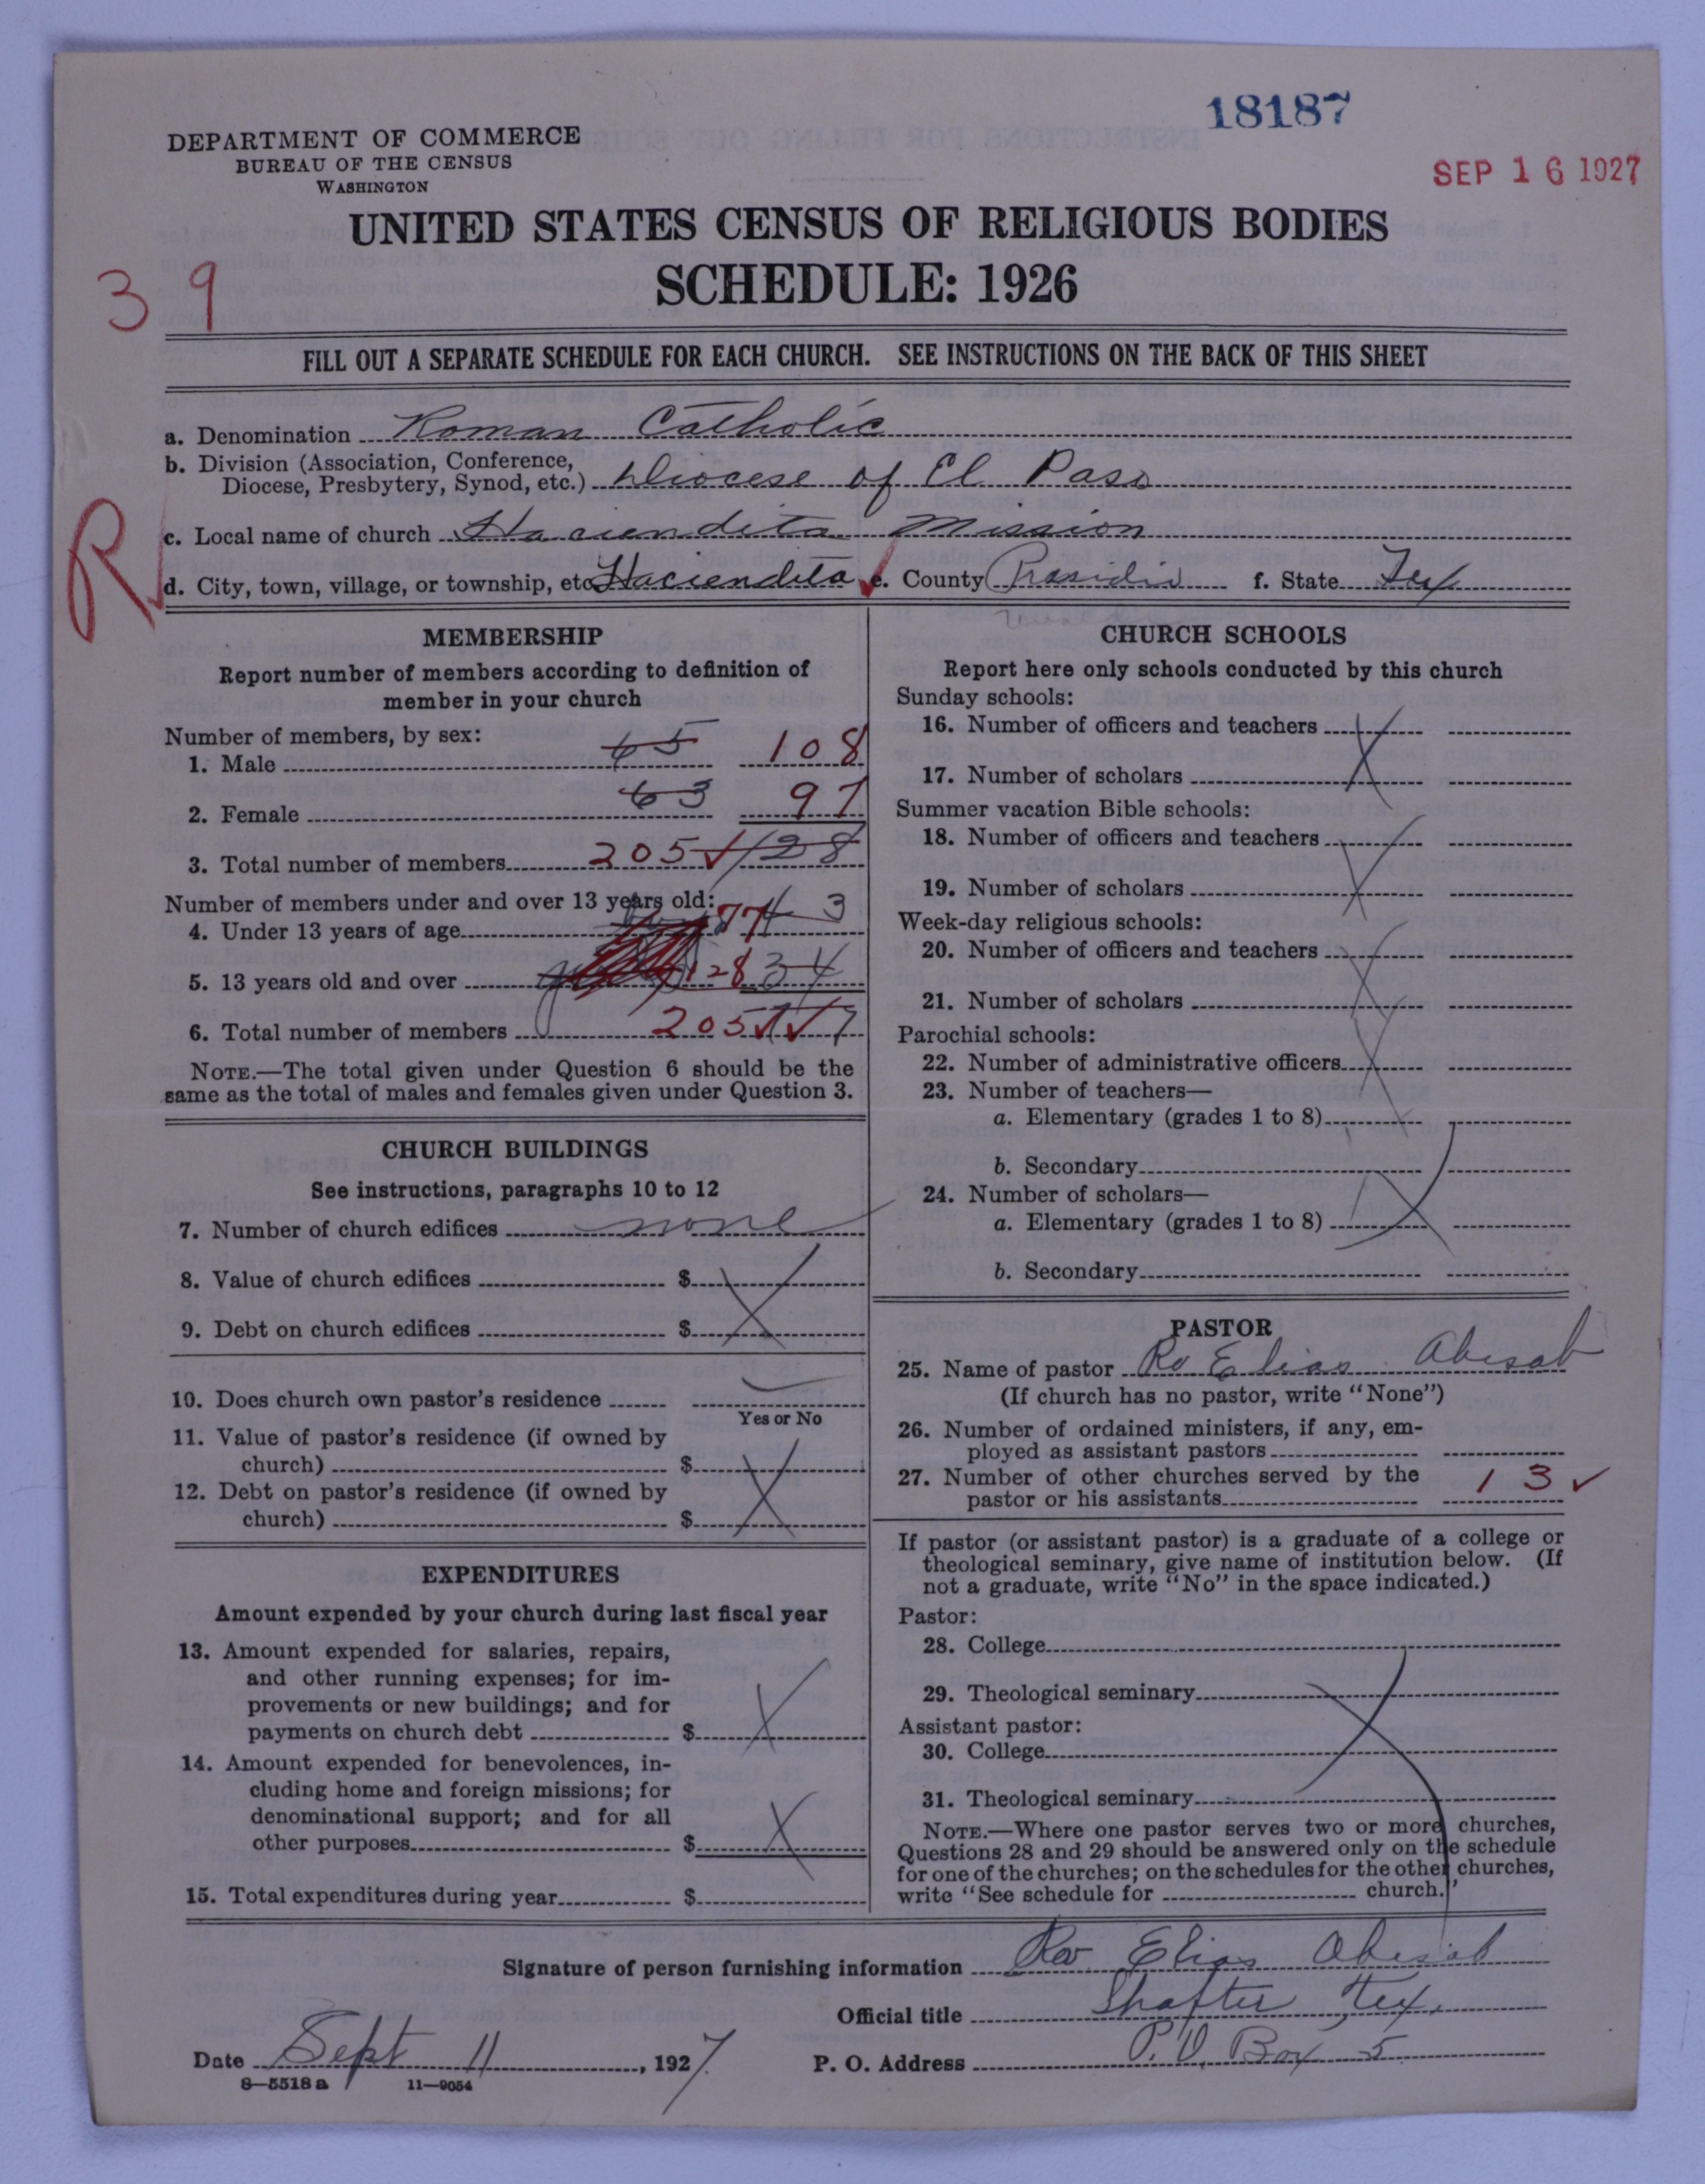 18187
DEPARTMENT OF COMMERCE
BUREAU OF THE CENSUS
WASHINGTON
SEP 16 1927
UNITED STATES CENSUS OF RELIGIOUS BODIES
SCHEDULE: 1926
39
FILL OUT A SEPARATE SCHEDULE FOR EACH CHURCH. SEE INSTRUCTIONS ON THE BACK OF THIS SHEET
a. Denomination Roman Catholic
b. Division (Association, Conference,
Diocese, Presbytery, Synod, etc.) Diocese of El Paso
R
c. Local name of church Haciendita Mission
d. City, town, village, or township, etc. Haciendita e. County Presidio f. State Tex
MEMBERSHIP
Report number of members according to definition of
member in your church
Number of members, by sex:
1. Male 65 108
2. Female 63 97
3. Total number of members 205 128
Number of members under and over 13 years old:
4. Under 13 years of age 77 43
5. 13 years old and over 128 34
6. Total number of members 205
NOTE.—The total given under Question 6 should be the
same as the total of males and females given under Question 3.
CHURCH BUILDINGS
See instructions, paragraphs 10 to 12
7. Number of church edifices none
8. Value of church edifices $
9. Debt on church edifices $
10. Does church own pastor's residence
Yes or No
11. Value of pastor's residence (if owned by
church) $
12. Debt on pastor's residence (if owned by
church) $
EXPENDITURES
Amount expended by your church during last fiscal year
13. Amount expended for salaries, repairs,
and other running expenses; for im-
provements or new buildings; and for
payments on church debt $
14. Amount expended for benevolences, in-
cluding home and foreign missions; for
denominational support; and for all
other purposes $
15. Total expenditures during year $
CHURCH SCHOOLS
Report here only schools conducted by this church
Sunday schools:
16. Number of officers and teachers
17. Number of scholars
Summer vacation Bible schools:
18. Number of officers and teachers
19. Number of scholars
Week-day religious schools:
20. Number of officers and teachers
21. Number of scholars
Parochial schools:
22. Number of administrative officers
23. Number of teachers—
a. Elementary (grades 1 to 8)
b. Secondary
24. Number of scholars—
a. Elementary (grades 1 to 8)
b. Secondary
PASTOR
25. Name of pastor Rv Elias Abesab
(If church has no pastor, write "None")
26. Number of ordained ministers, if any, em-
ployed as assistant pastors
27. Number of other churches served by the
pastor or his assistants 13
If pastor (or assistant pastor) is a graduate of a college or
theological seminary, give name of institution below. (If
not a graduate, write "No" in the space indicated.)
Pastor:
28. College
29. Theological seminary
Assistant pastor:
30. College
31. Theological seminary
NOTE.—Where one pastor serves two or more churches,
Questions 28 and 29 should be answered only on the schedule
for one of the churches; on the schedules for the other churches,
write "See schedule for church."
Signature of person furnishing information Rev. Elias Abesab
Official title Shafter, Tex.
Date Sept 11, 1927. P. O. Address P.O. Box 5
8—5518 a 11—9054